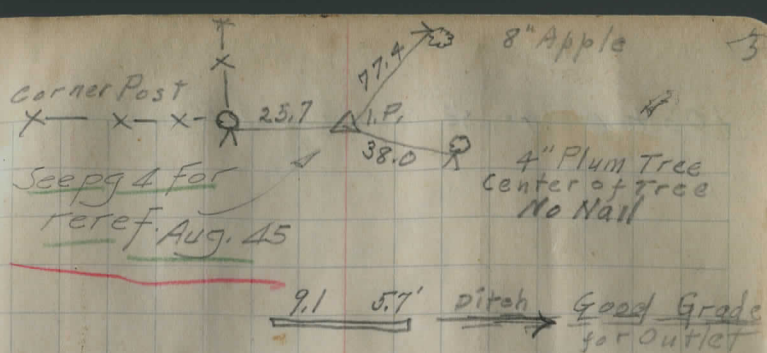 8" Apple
3
77.4
Corner Post
25.7
I.P.
38.0
4" Plum Tree
Center of Tree
No Nail
See pg 4 for
reref. Aug. 45
9.1 5.7' Ditch Good Grade
for Outlet